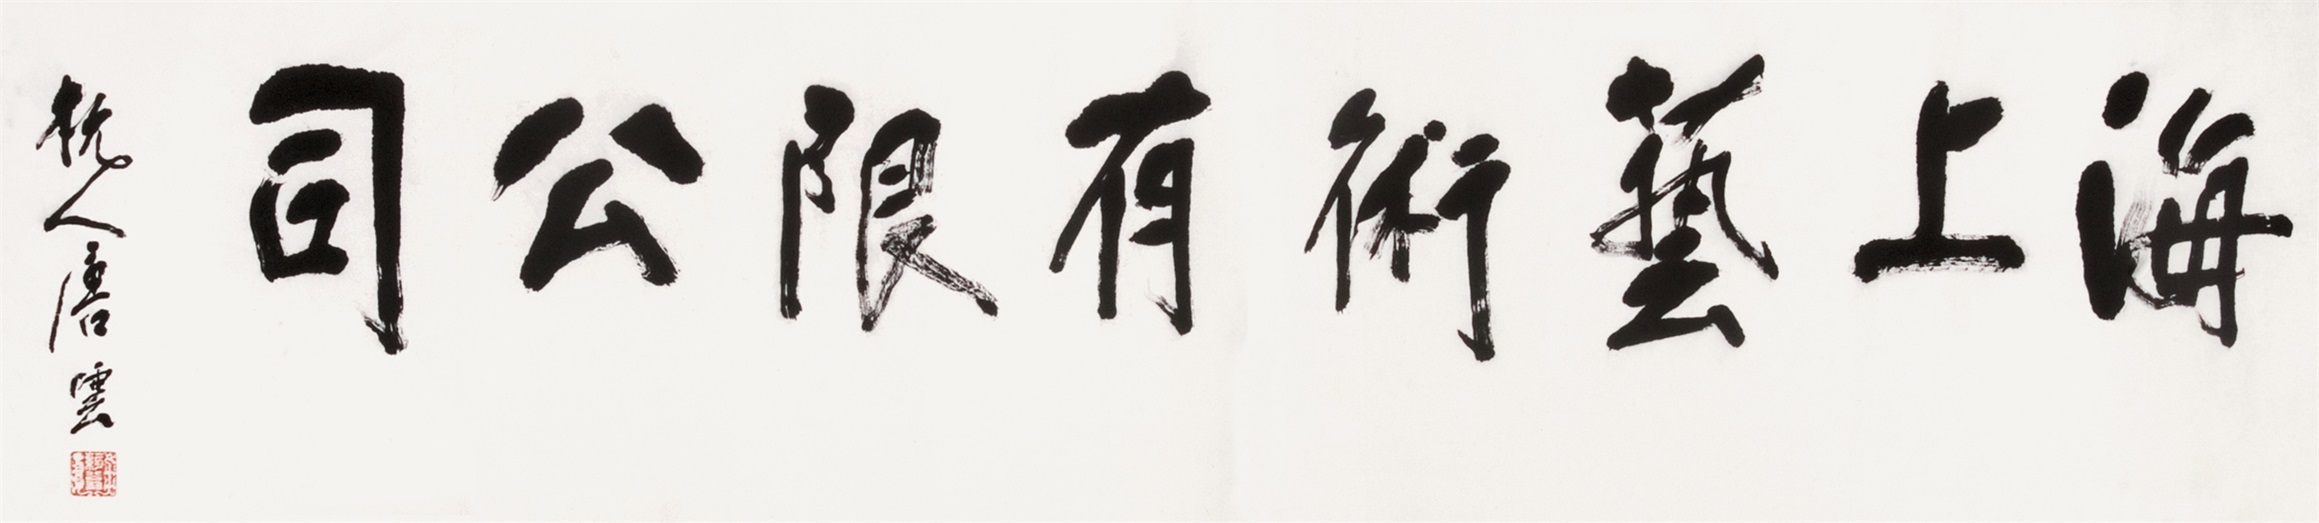 海上藝術有限公司
杭人唐雲